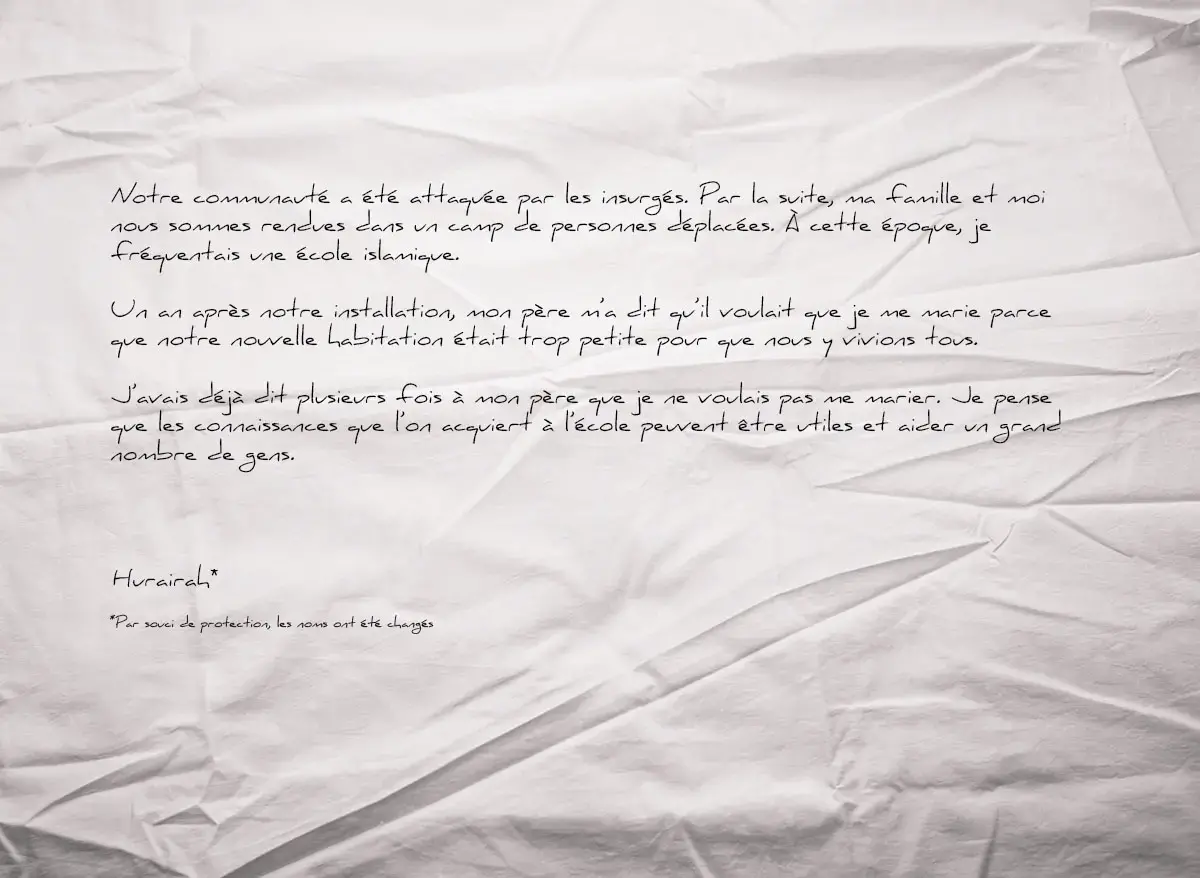 Notre communauté a été attaquée par les insurgés. Par la suite, ma famille et moi
nous sommes rendues dans un camp de personnes déplacées. À cette époque, je
fréquentais une école islamique.
Un an après notre installation, mon père m'a dit qu'il voulait que je me marie parce
que notre nouvelle habitation était trop petite pour que nous y vivions tous.
J'avais déjà dit plusieurs fois à mon père que je ne voulais pas me marier. Je pense
que les connaissances que l'on acquiert à l'école peuvent être utiles et aider un grand
nombre de gens.
Hurairah*
*Par souci de protection, les noms ont été changés